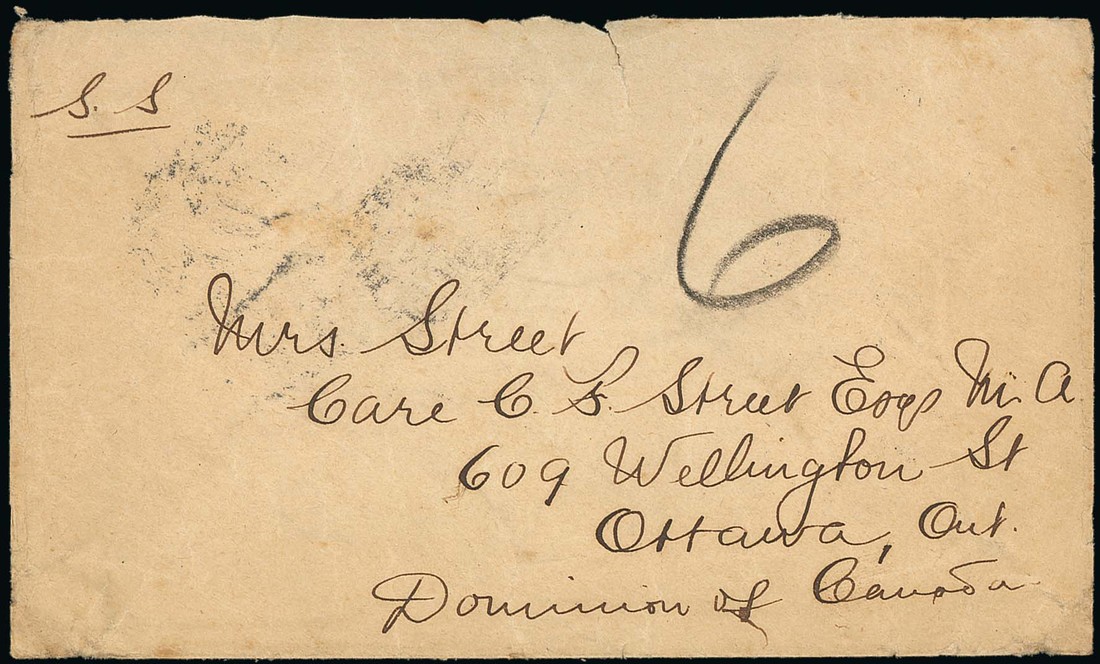 S. S
6
Mrs. Street
Care C. F. Street Esqr M. A.
609 Wellington St
Ottawa, Ont.
Dominion of Canada